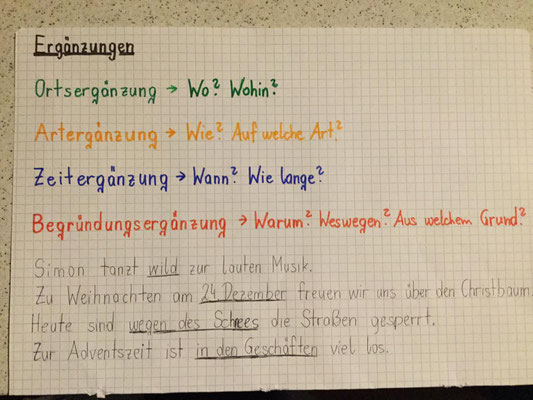 Ergänzungen
Ortsergänzung → Wo? Wohin?
Artergänzung → Wie? Auf welche Art?
Zeitergänzung → Wann? Wie lange?
Begründungsergänzung → Warum? Weswegen? Aus welchem Grund?
Simon tanzt wild zur lauten Musik.
Zu Weihnachten am 24 Dezember freuen wir uns über den Christbaum.
Heute sind wegen des Schnees die Straßen gesperrt.
Zur Adventszeit ist in den Geschäften viel los.